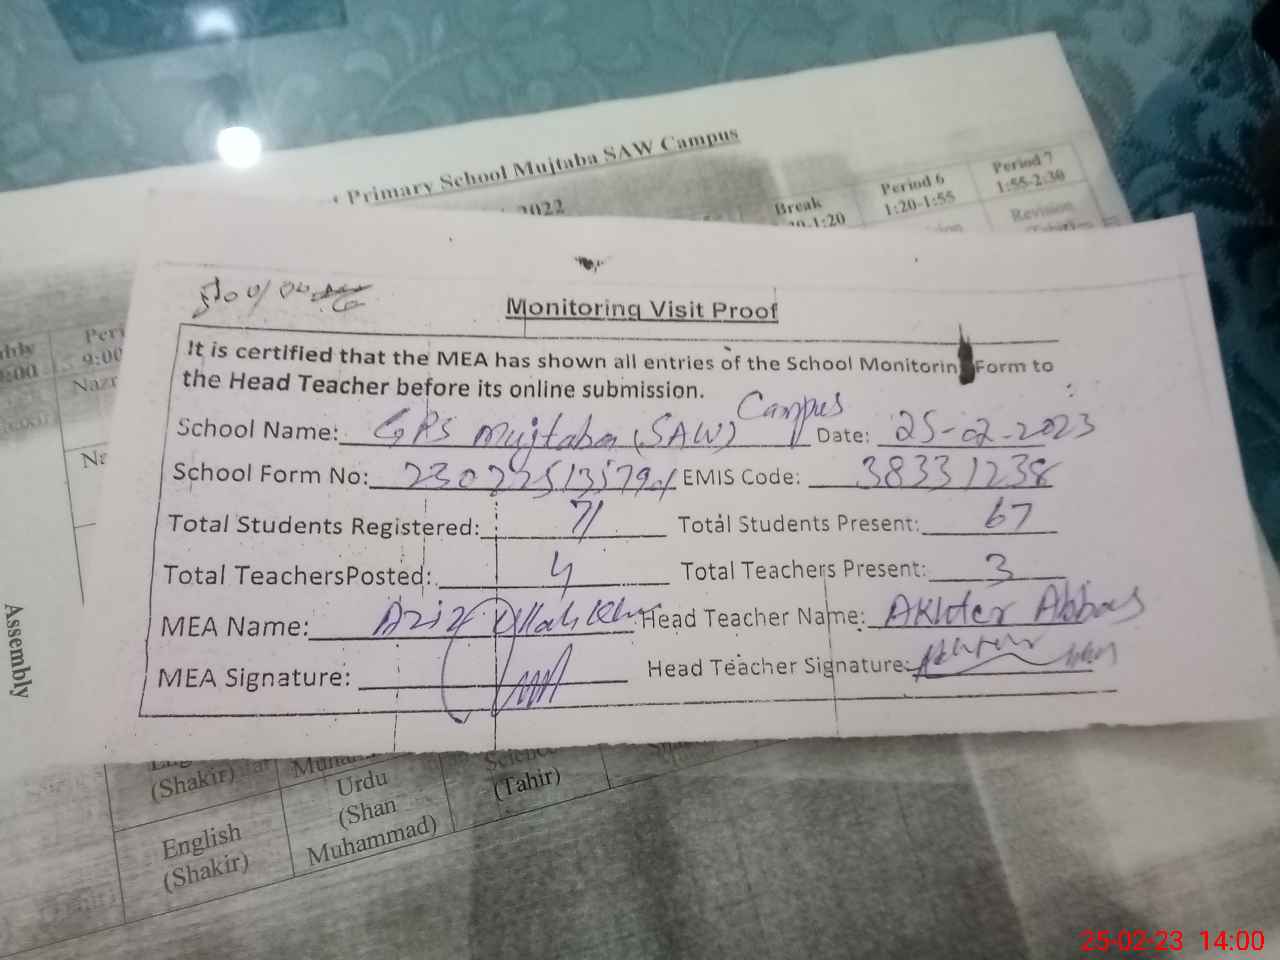 Primary School Mujtaba SAW Campus
2022
Break
Period 6
1:20-1:55
Period 7
1:55-2:30
Revision
Monitoring Visit Proof
It is certified that the MEA has shown all entries of the School Monitorin Form to
the Head Teacher before its online submission.
School Name: GPS Mujtaba (SAW) Campus Date: 25-02-2023
School Form No: EMIS Code: 38331238
Total Students Registered: 71 Total Students Present: 67
Total TeachersPosted: 4 Total Teachers Present: 3
MEA Name: Aziz Ullah Khan Head Teacher Name: Akhter Abbas
MEA Signature: Head Teacher Signature:
Assembly
(Shakir)
English
(Shakir)
Urdu
(Shan
Muhammad)
Science
(Tahir)
25-02-23 14:00